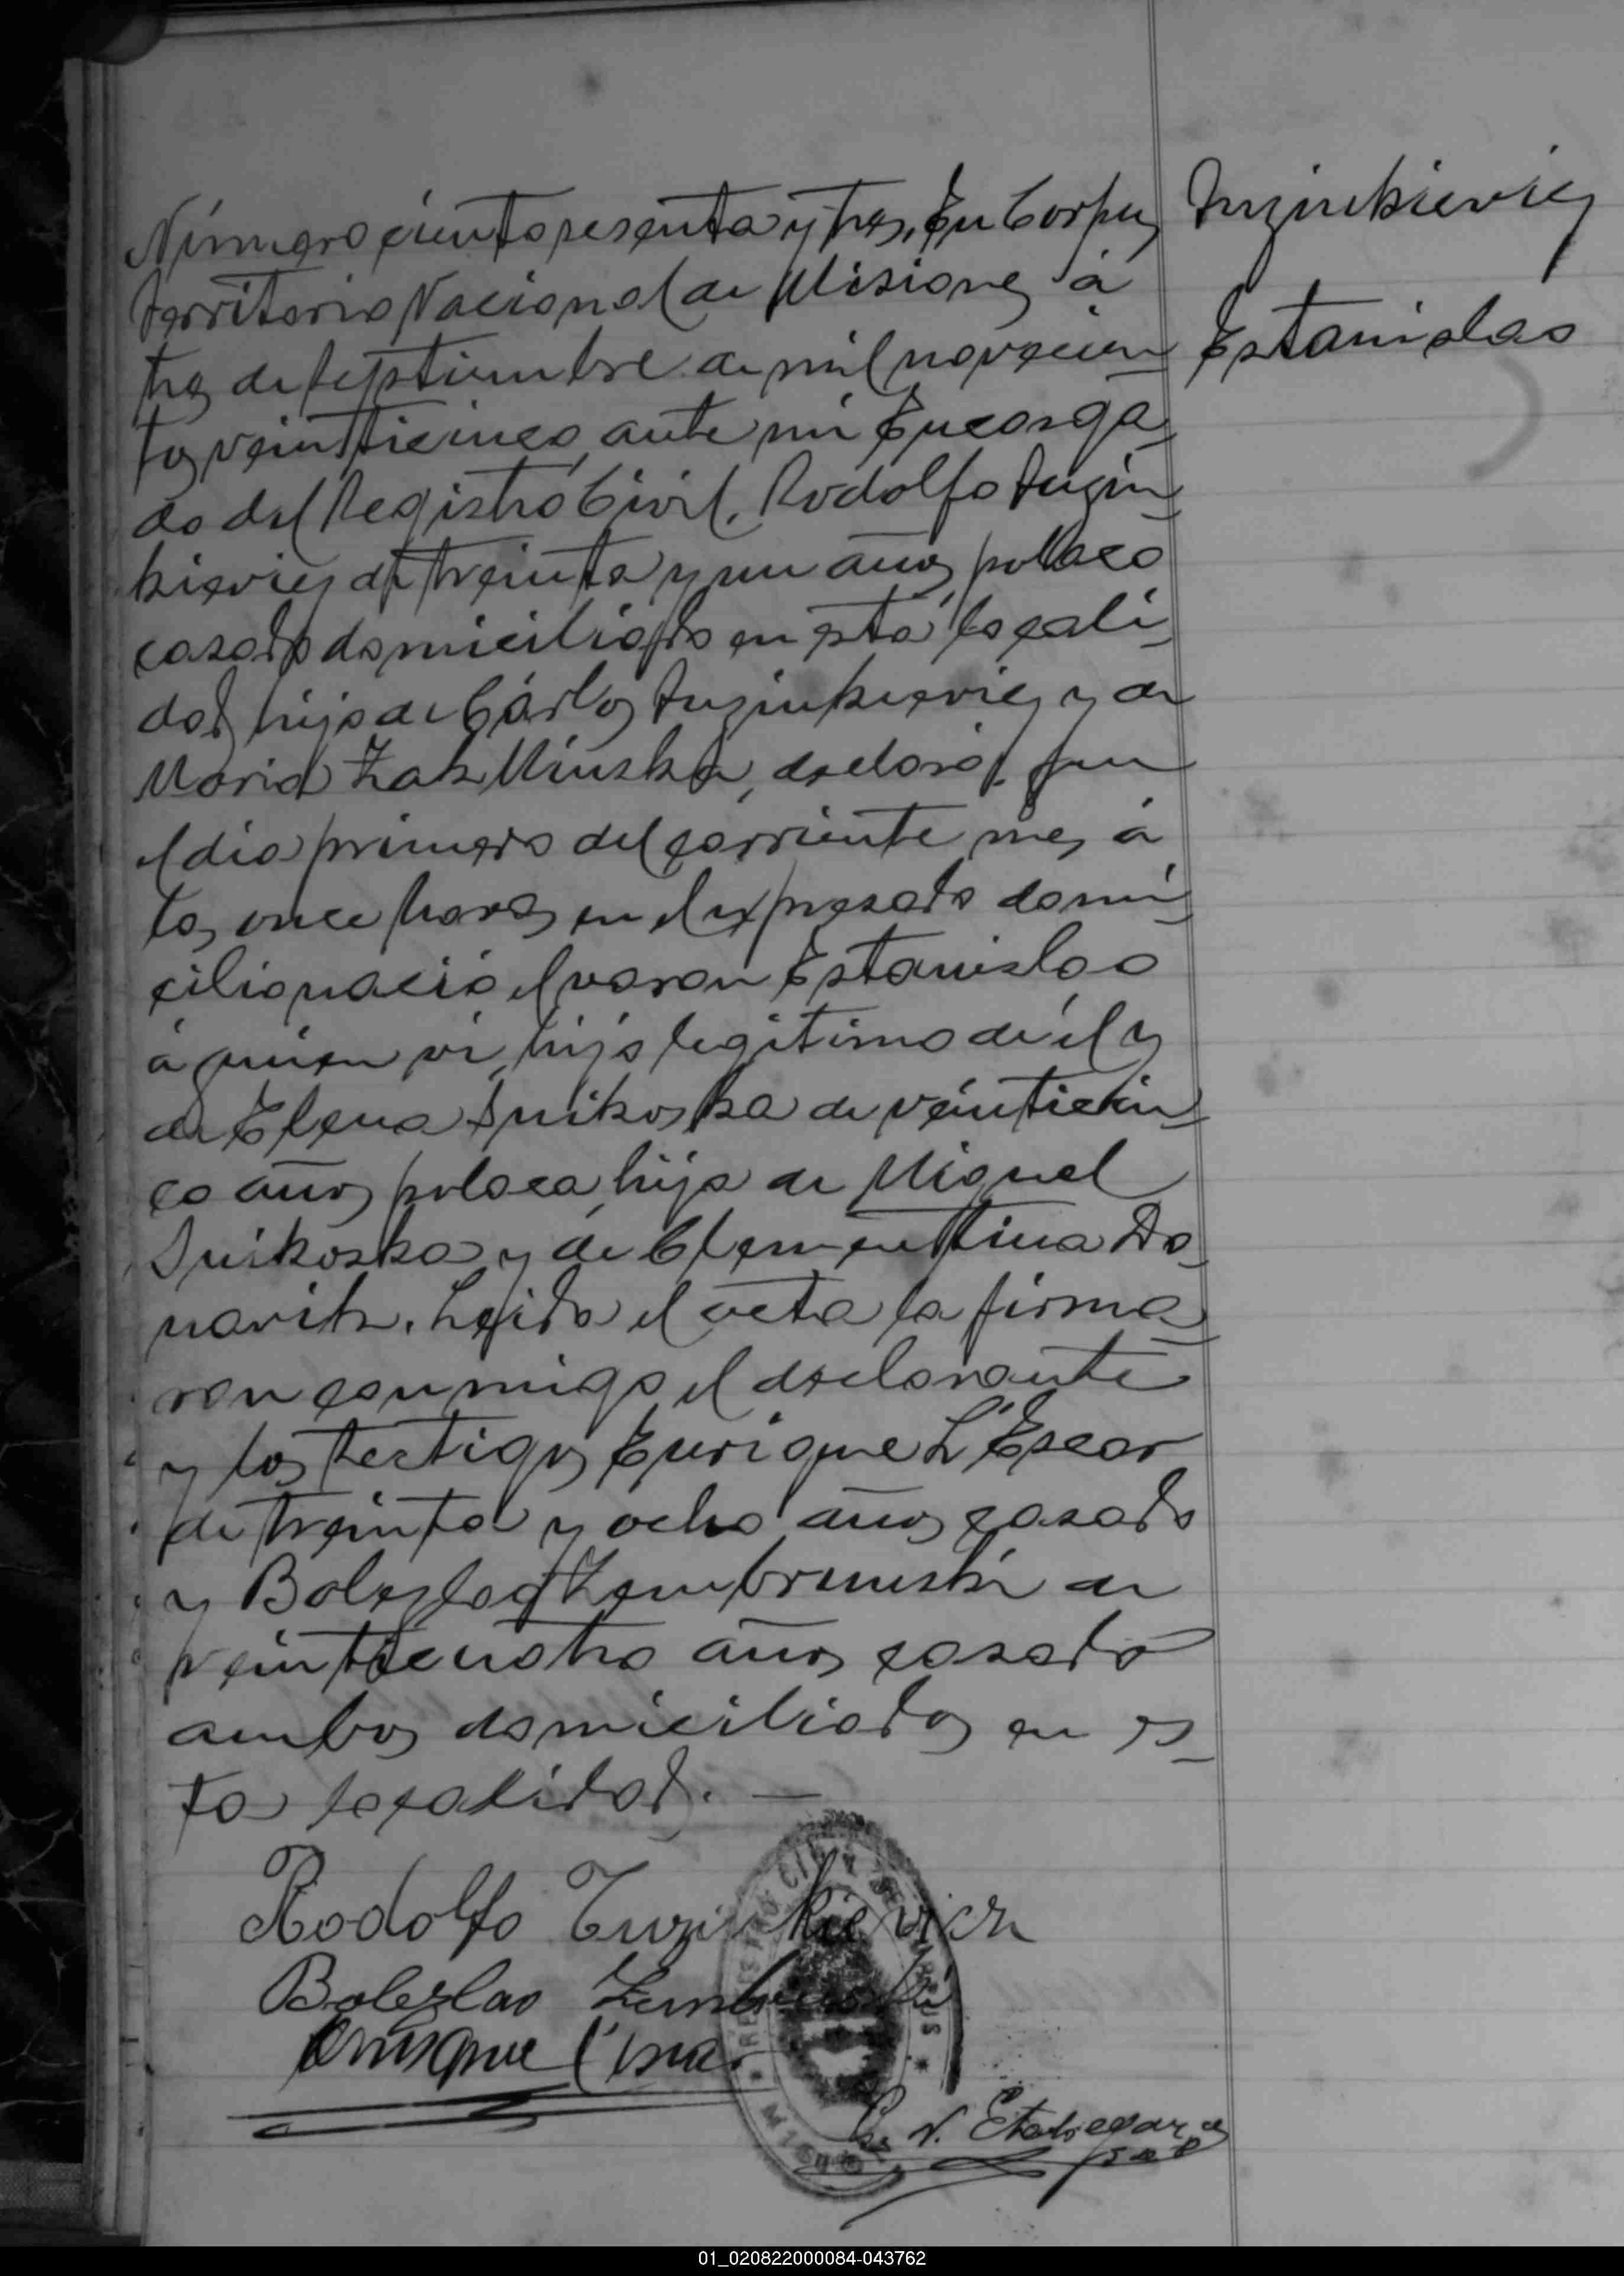 Número ciento sesenta y tres. En Corpus
Territorio Nacional de Misiones á
tres de septiembre de mil novecien
tos veinticinco, ante mi Encarga
do del Registro Civil, Rodolfo Tuzin
kieviez de treinta y un años, polaco
casado domiciliado en esta locali
dad, hijo de Cárlos Tuzinkieviez y de
Maria ZakMinska, declaró: que
el dia primero del corriente mes á
las once horas en el expresado domi
cilio nació el varon Estanislao
á quien vi, hijo legitimo de él y
de Elena Snikoska de veinticin
co años, polaca, hija de Miguel
Snikoska y de Clementina Do
narith. Leida el acta la firma
ron conmigo el declarante
y los testigos Enrique L'Escar
de treinta y ocho años, casado
y Boleslao Zembruuski de
veinticuatro años casado
ambos domiciliados en es
ta localidad. —
Tuzinkieviez
Estanislao
Rodolfo Tuzinkievicz
Bolezlao
Enrique
REGISTRO CIVIL DE CORPUS
* MISIONES *
N. Etchegaray
01_020822000084-043762